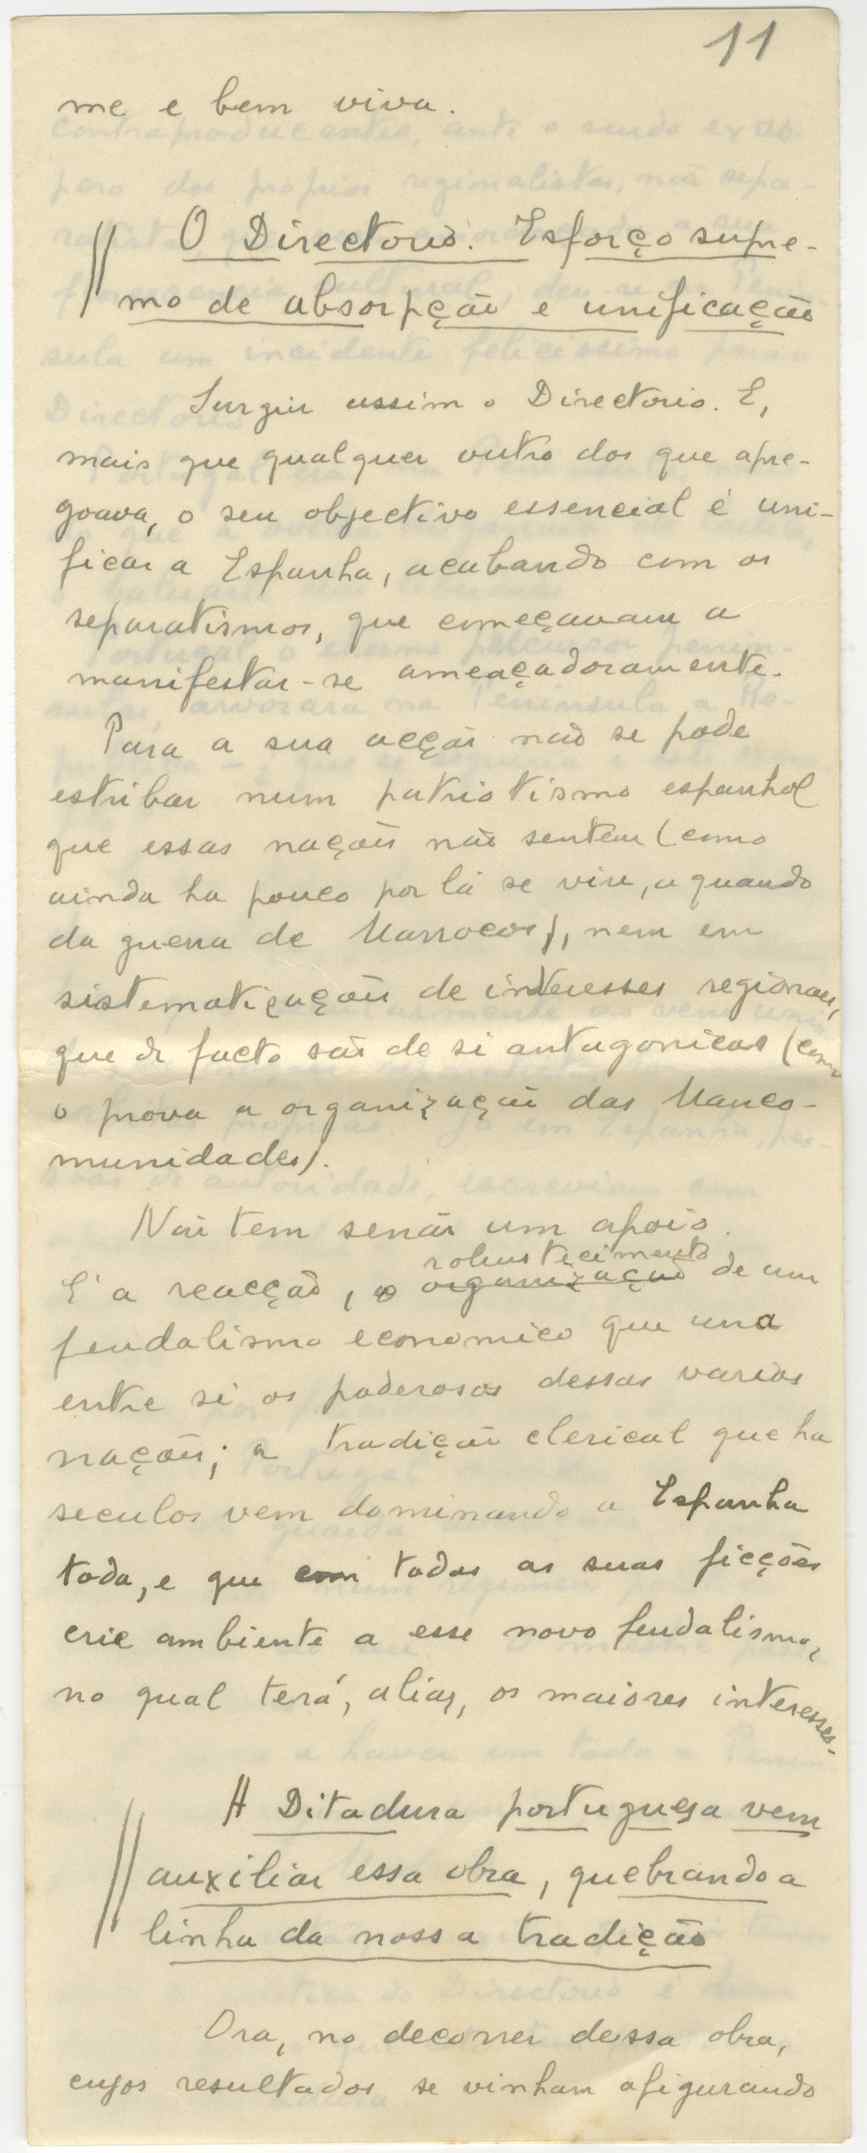 11
me e bem viva.
O Directorio. Esforço supre-
mo de absorpção e unificação
Surgiu assim o Directorio. E,
mais que qualquer outro dos que apre-
goava, o seu objectivo essencial é uni-
ficar a Espanha, acabando com os
separatismos, que começavam a
manifestar-se ameaçadoramente.
Para a sua acção não se pode
estribar num patriotismo espanhol
que essas nações não sentem (como
ainda ha pouco por lá se viu, a quando
da guerra de Marrocos), nem em
sistematizações de interesses regionaes,
que de facto são de si antagonicos (como
o prova a organização das Manco-
munidades).
Não tem senão um apoio.
robustecimento
E' a reacção, o organização de um
feudalismo economico que una
entre si os poderosos dessas varias
nações; a tradição clerical que ha
seculos vem dominando a Espanha
toda, e que com todas as suas ficções
crie ambiente a esse novo feudalismo,
no qual terá, alias, os maiores interesses.
A Ditadura portuguesa vem
auxiliar essa obra, quebrando a
linha da nossa tradição
Ora, no decorrer dessa obra,
cujos resultados se vinham afigurando